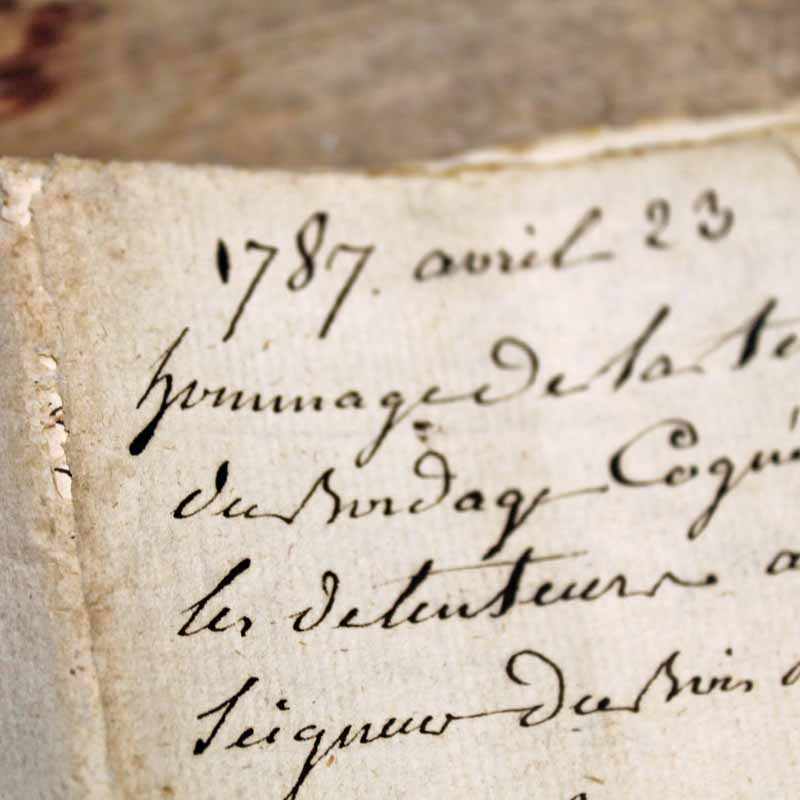 1787. avril 23
hommage de la te
du Bordage Coqué
les detenteurs a
Seigneur du Bois d